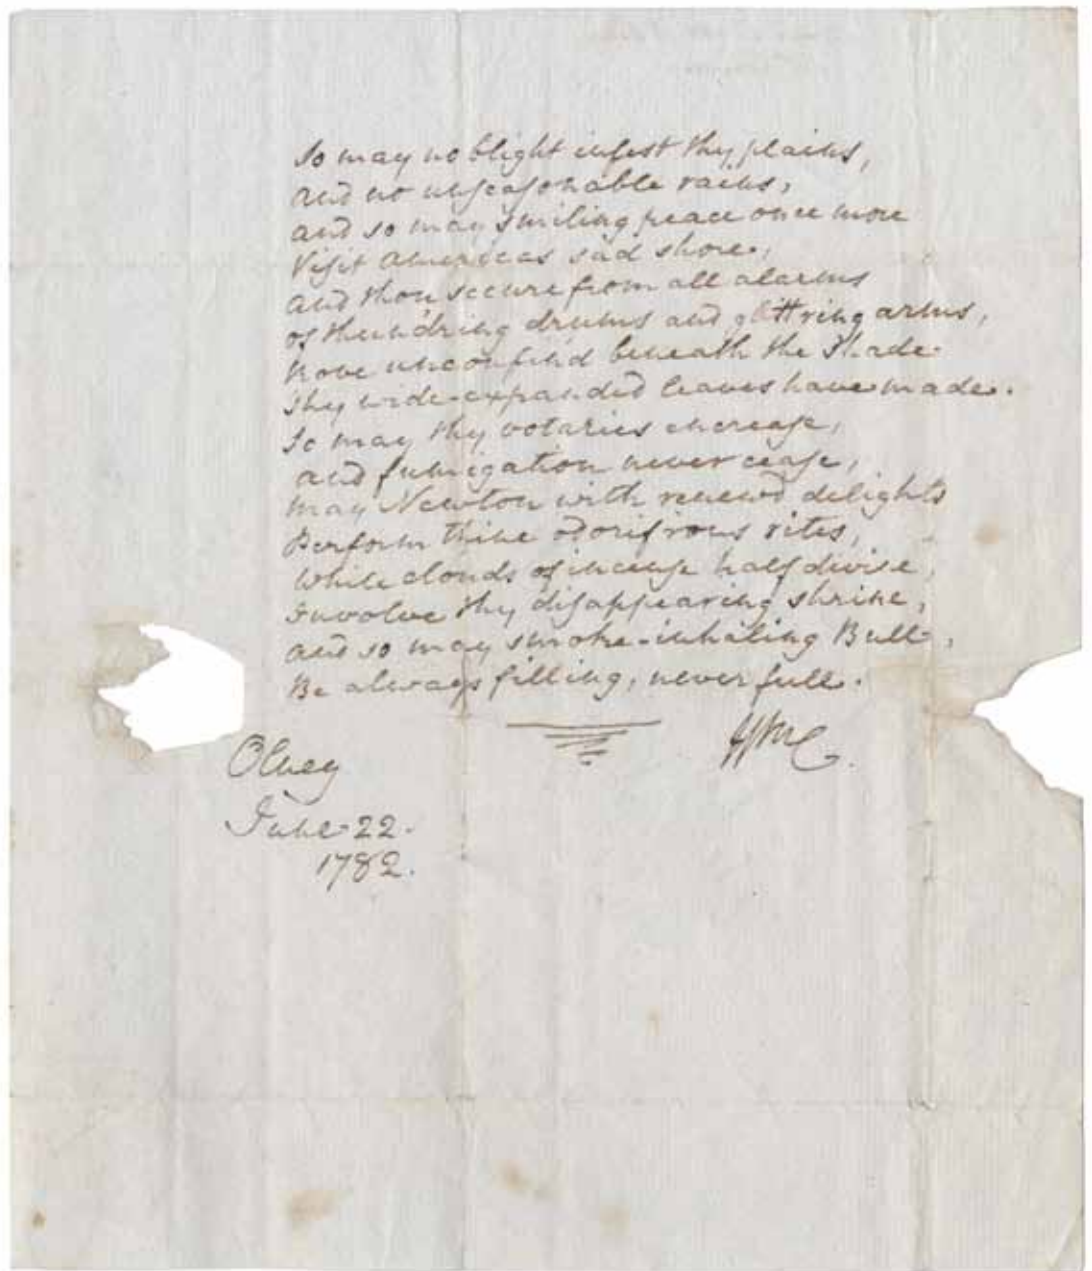 So may no blight infest thy plains,
And no unseasonable rains,
And so may smiling peace once more
Visit Americas sad shore,
And thou secure from all alarms
Of thund'ring drums and glitt'ring arms,
Rove unconfin'd beneath the Shade
Thy wide-expanded leaves have made.
So may thy votaries encrease,
And fumigation never cease,
May Newton with renew'd delights
Perform thine odorif'rous rites,
While clouds of incense half divine,
Involve thy disappearing shrine,
And so may smoke-inhaling Bull,
Be always filling, never full.
Olney
June 22.
1782.